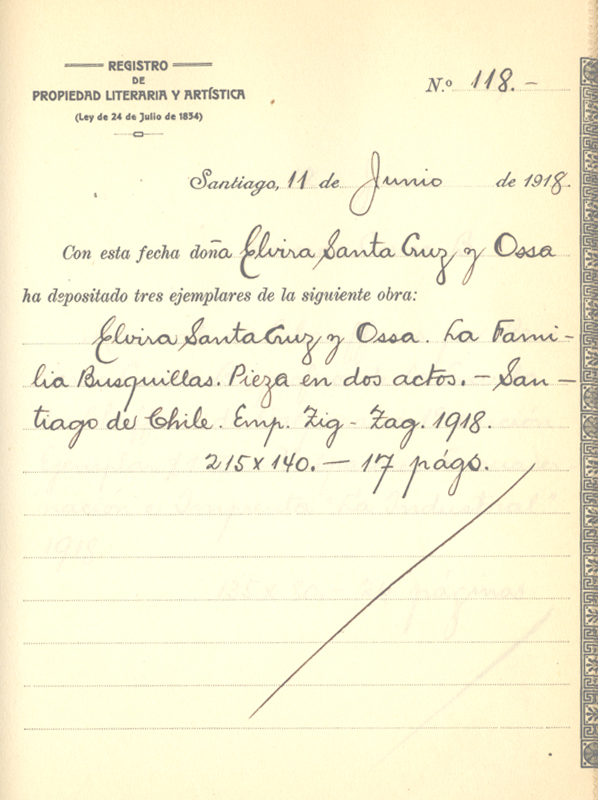 REGISTRO
DE
PROPIEDAD LITERARIA Y ARTÍSTICA
(Ley de 24 de Julio de 1834)
N.º 118.-
Santiago, 11 de Junio de 1918.
Con esta fecha doña Elvira Santa Cruz y Ossa
ha depositado tres ejemplares de la siguiente obra:
Elvira Santa Cruz y Ossa. La Fami-
lia Busquillas. Pieza en dos actos. - San-
tiago de Chile. Emp. Zig - Zag. 1918.
215 x 140. - 17 págs.